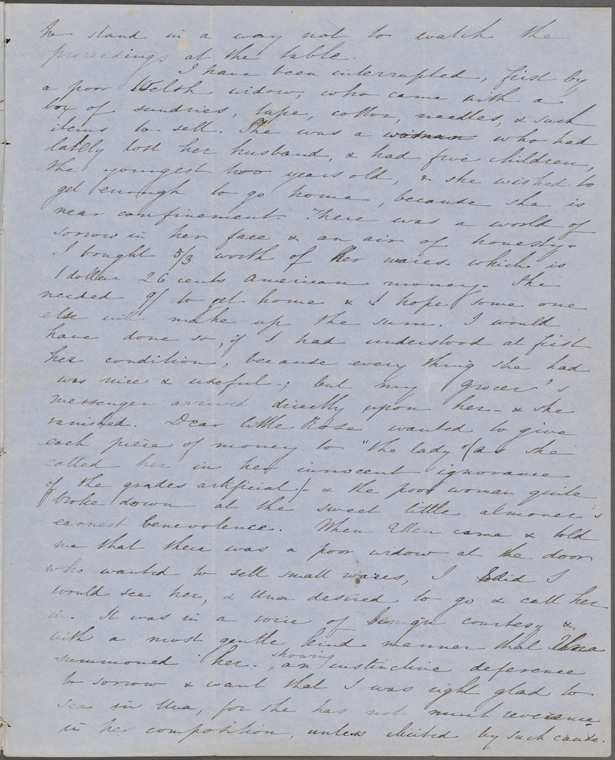 to stand in a way not to watch the
proceedings at the table.
I have been interrupted, first by
a poor Welsh widow, who came with a
box of sundries, tape, cotton, needles, & such
items to sell. She was a woman who had
lately lost her husband, & had five children,
the youngest two years old, & she wished to
get enough to go home, because she is
near confinement. There was a world of
sorrow in her face & an air of honesty.
I bought 5/3 worth of her wares. which is
1 dollar 26 cents American money. She
needed £ to get home & I hope some one
else will make up the sum. I would
have done so, if I had understood at first
her condition, because every thing she had
was nice & useful; but my grocer's
messenger arrived directly upon her & she
vanished. Dear little Rose wanted to give
each piece of money to "the lady" (as she
called her in her innocent ignorance
of the grades artificial) & the poor woman quite
broke down at the sweet little almoner's
earnest benevolence. When Ellen came & told
me that there was a poor widow at the door
who wanted to sell small wares, I said I
would see her, & Una desired to go & call her
in. It was in a voice of benign courtesy &
with a most gentle, kind manner that Una
summoned her, showing an instinctive deference
to sorrow & want that I was right glad to
see in Una, for she has not much reverence
in her composition, unless elicited by such cause.